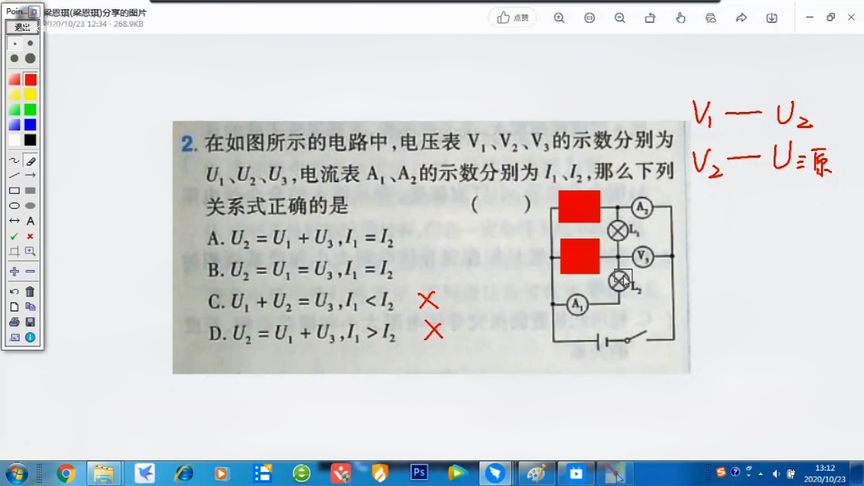 Poin...
梁恩琪(梁恩琪)分享的图片
2020/10/23 12:34 - 268.9KB
点赞
退出
V₁ — U₂
V₂ — U源
2. 在如图所示的电路中,电压表 V₁、V₂、V₃的示数分别为
U₁、U₂、U₃,电流表 A₁、A₂的示数分别为 I₁、I₂,那么下列
关系式正确的是 ( )
A. U₂ = U₁ + U₃, I₁ = I₂
B. U₂ = U₁ = U₃, I₁ = I₂
C. U₁ + U₂ = U₃, I₁ < I₂
D. U₂ = U₁ + U₃, I₁ > I₂
A₂
L₁
V₃
L₂
A₁
A
Ps
13:12
2020/10/23